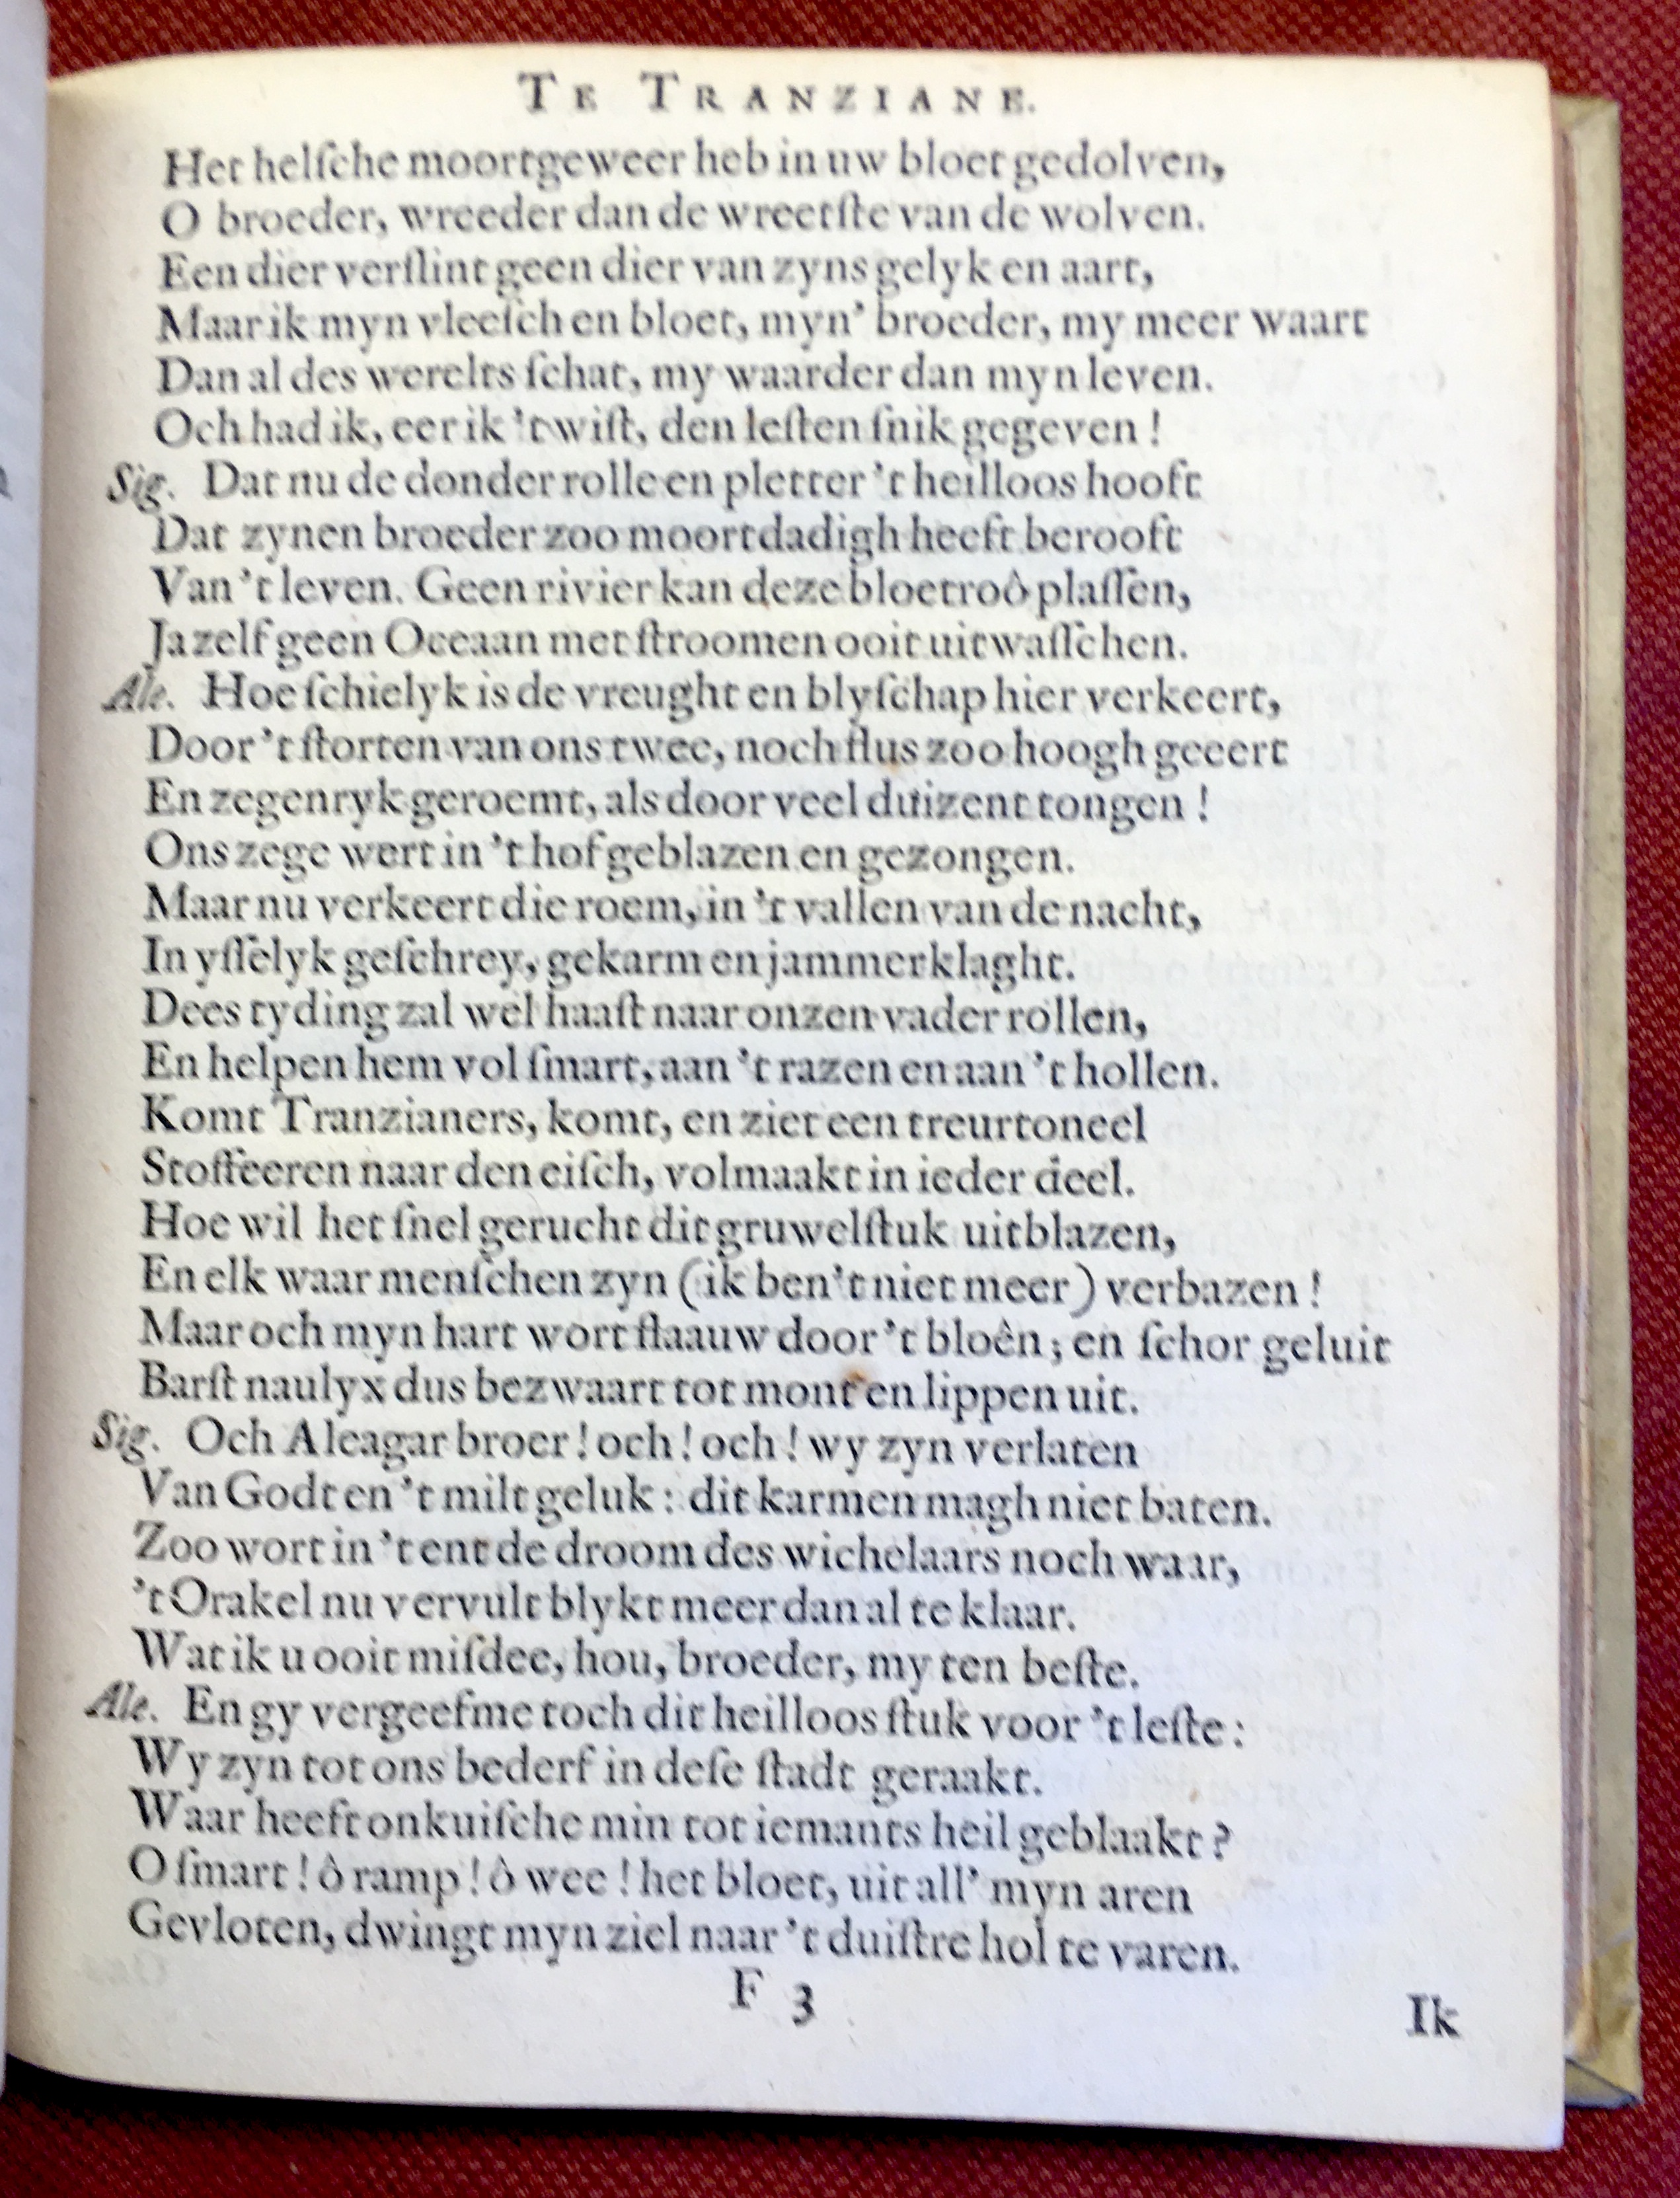 TE TRANZIANE.
Het helſche moortgeweer heb in uw bloet gedolven,
O broeder, wreeder dan de wreetſte van de wolven.
Een dier verſlint geen dier van zyns gelyk en aart,
Maar ik myn vleeſch en bloet, myn' broeder, my meer waart
Dan al des werelts ſchat, my waarder dan myn leven.
Och had ik, eer ik 't wiſt, den leſten ſnik gegeven!
Sig. Dat nu de donder rolle en pletter 't heilloos hooft
Dat zynen broeder zoo moortdadigh heeft berooft
Van 't leven. Geen rivier kan deze bloetroô plaſſen,
Ja zelf geen Oceaan met ſtroomen ooit uitwaſſchen.
Ale. Hoe ſchielyk is de vreught en blyſchap hier verkeert,
Door 't ſtorten van ons twee, noch flus zoo hoogh geeert
En zegenryk geroemt, als door veel duizent tongen!
Ons zege wert in 't hof geblazen en gezongen.
Maar nu verkeert die roem, in 't vallen van de nacht,
In yſſelyk geſchrey, gekarm en jammerklaght.
Dees tyding zal wel haaſt naar onzen vader rollen,
En helpen hem vol ſmart, aan 't razen en aan 't hollen.
Komt Tranzianers, komt, en ziet een treurtoneel
Stoffeeren naar den eiſch, volmaakt in ieder deel.
Hoe wil het ſnel gerucht dit gruwelſtuk uitblazen,
En elk waar menſchen zyn (ik ben 't niet meer) verbazen!
Maar och myn hart wort flaauw door 't bloên; en ſchor geluit
Barſt naulyx dus bezwaart tot mont en lippen uit.
Sig. Och Aleagar broer! och! och! wy zyn verlaten
Van Godt en 't milt geluk: dit karmen magh niet baten.
Zoo wort in 't ent de droom des wichelaars noch waar,
't Orakel nu vervult blykt meer dan al te klaar.
Wat ik u ooit miſdee, hou, broeder, my ten beſte.
Ale. En gy vergeef me toch dit heilloos ſtuk voor 't leſte:
Wy zyn tot ons bederf in deſe ſtadt geraakt.
Waar heeft onkuiſche min tot iemants heil geblaakt?
O ſmart! ô ramp! ô wee! het bloet, uit all' myn aren
Gevloten, dwingt myn ziel naar 't duiſtre hol te varen.
F 3
Ik